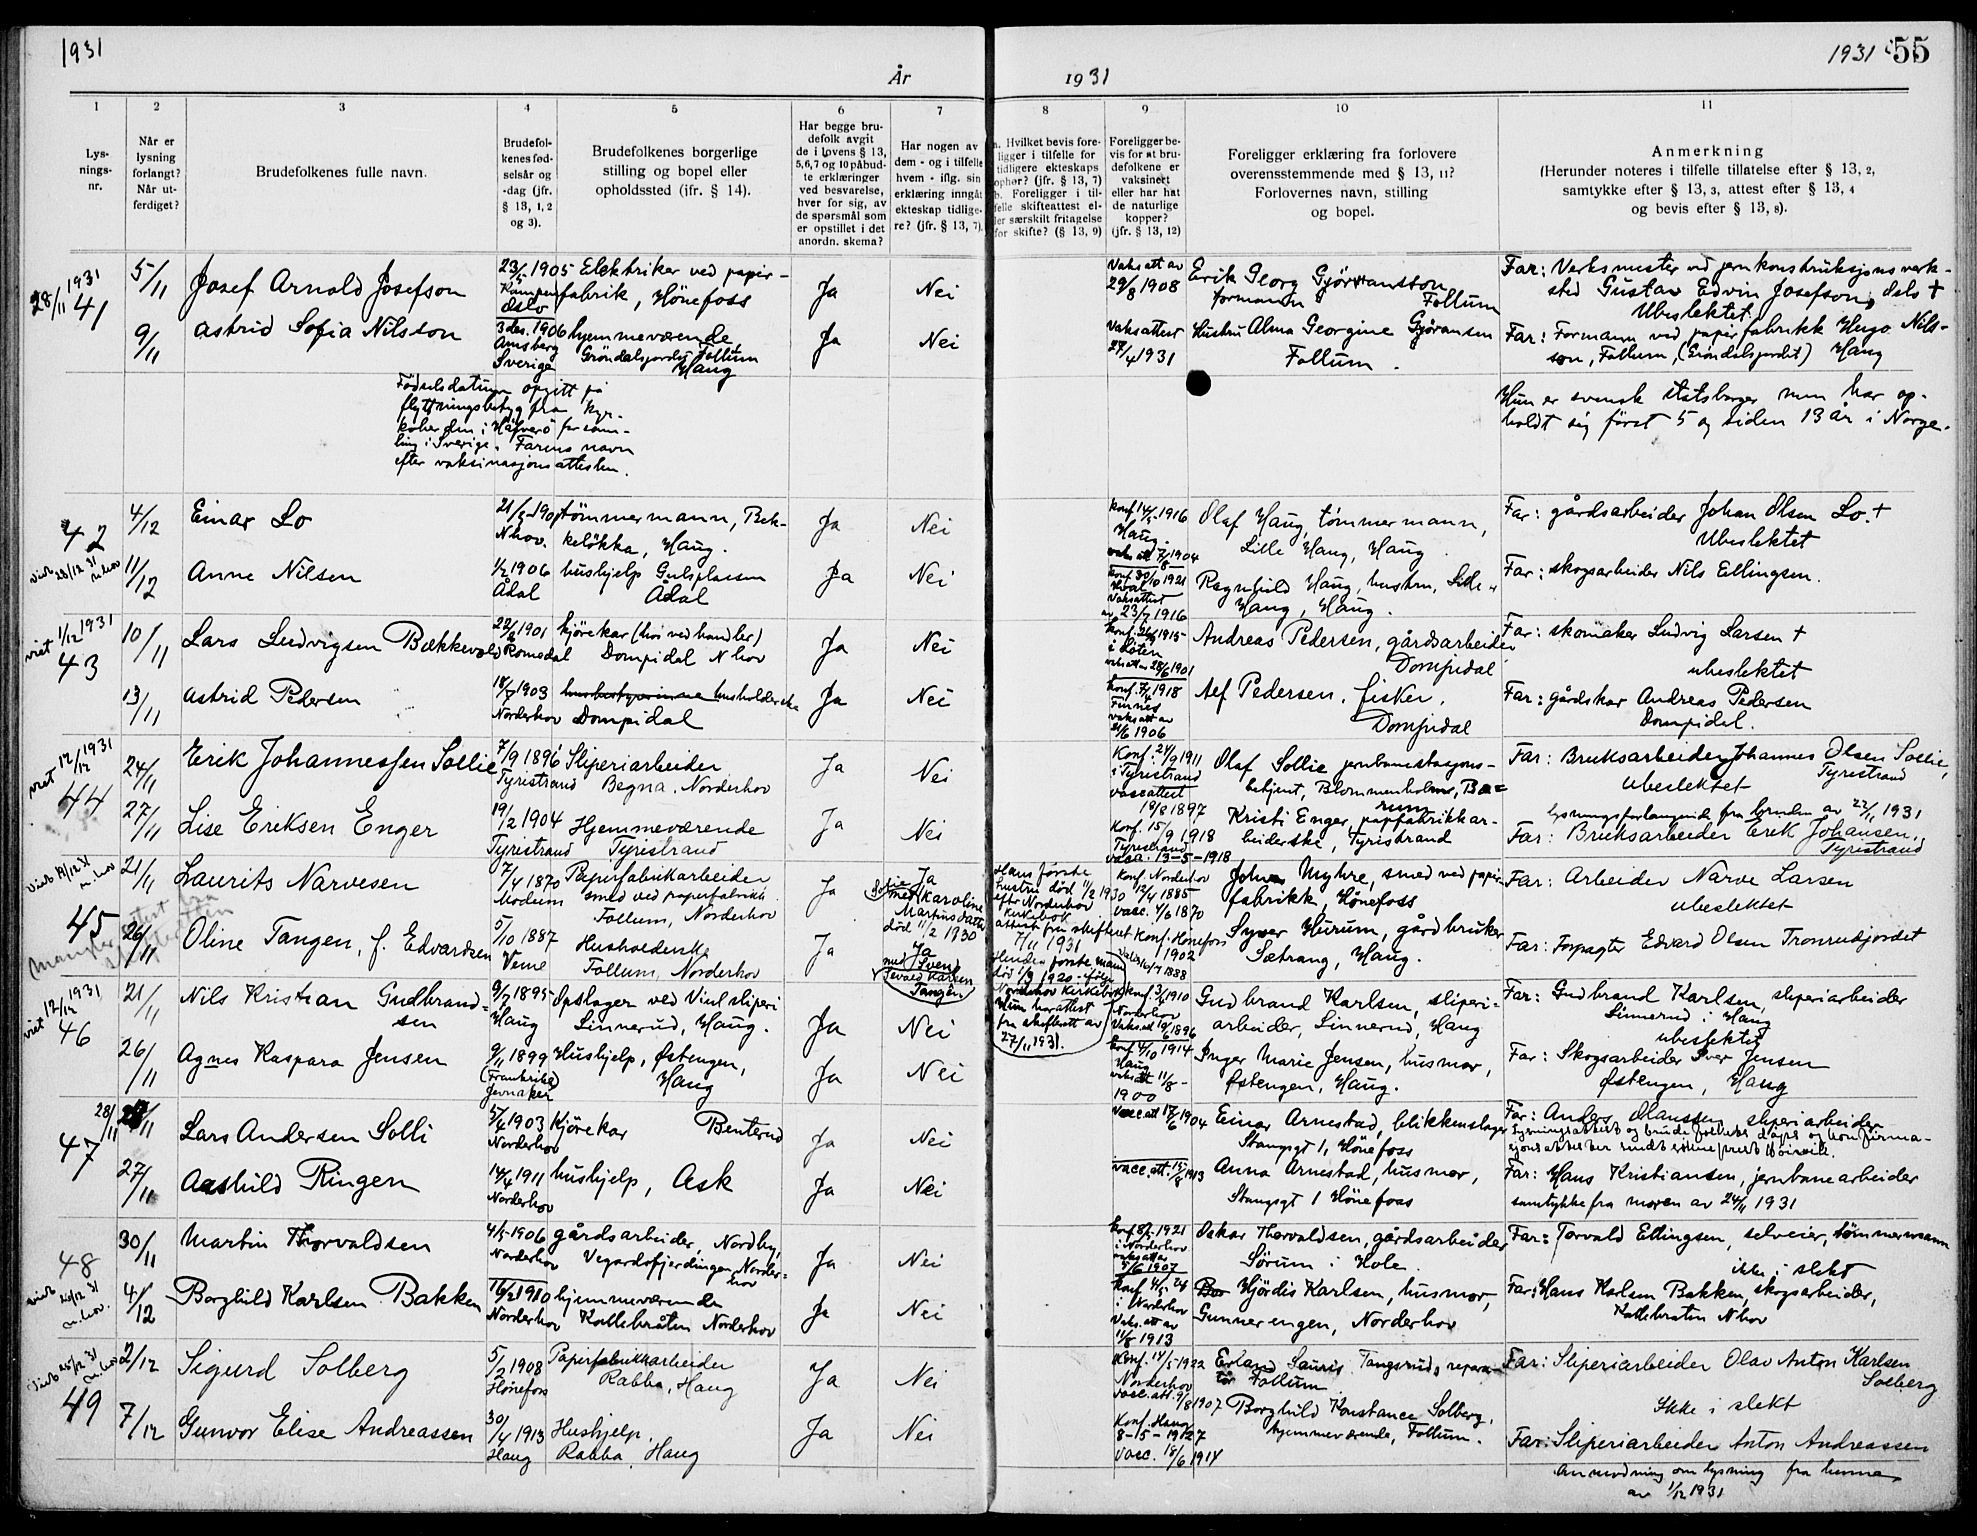 1931
År
1931
1931 55
1
2
3
4
5
6
7
8
9
10
11
Lys-
nings-
nr.
Når er
lysning
forlangt?
Når ut-
ferdiget?
Brudefolkenes fulle navn.
Brudefol-
kenes fød-
selsår og
-dag (jfr.
§ 13, 1, 2
og 3).
Brudefolkenes borgerlige
stilling og bopel eller
opholdssted (jfr. § 14).
Har begge bru-
defolk avgit
de i lovens § 13,
5,6,7 og 10 påbud-
te erklæringer
ved besvarelse,
hver for sig, av
de spørsmål som
er opstillet i det
anordn. skema?
Har nogen av
dem - og i tilfelle
hvem - iflg. sin
erklæring inngåt
ekteskap tidlige-
re? (jfr. § 13, 7)
a. Hvilket bevis fore-
ligger i tilfelle for
tidligere ekteskaps
ophør? (jfr. § 13, 7)
b. Foreligger i til-
felle skifteattest el-
ler særskilt fritagelse
for skifte? (§ 13, 9)
Foreligger be-
vis for at bru-
defolkene er
vaksinert
eller har hat
de naturlige
kopper?
(jfr. § 13, 12)
Foreligger erklæring fra forlovere
overensstemmende med § 13, 11?
Forlovernes navn, stilling
og bopel.
Anmerkning
(Herunder noteres i tilfelle tillatelse efter § 13, 2,
samtykke efter § 13, 3, attest efter § 13, 4
og bevis efter § 13, 8).
28/11 1931
41
5/11
Josef Arnold Josefson
23/5 1905
Kampen
Oslo
Elektriker ved papir-
fabrik, Hönefoss
Ja
Nei
Vaks att av
29/8 1908
Erik Georg Gjörransson
formann Follum
Far: Verksmester ved jernkonstruksjonsverk-
sted Gustav Edvin Josefson, Oslo +
Ubeslektet
9/11
Astrid Sofia Nilsson
3 des. 1906
Sverige
hjemmeværende
Gröndalsjordet, Follum
Haug
Ja
Nei
Vaksattest
27/4 1931
Hustru Alma Georgine Gjöransen
Follum.
Far: Formann ved papirfabrikk Hugo Nils-
son, Follum, (Gröndalsjordet) Haug
Födselsdatum opgitt på
flyttningsbetyg fra Kyr-
koherden i Häfverö for sam-
ling i Sverige. Farens navn
efter vaksinasjonsattesten.
Hun er svensk statsborger men har op-
holdt sig först 5 og siden 13 år i Norge.
42
4/12
Einar Lo
Nhov.
tömmermann, Bek-
kelökka, Haug.
Ja
Nei
Konf 14/5-1916
Haug.
Olaf Haug, tömmermann,
Lille Haug, Haug
Far: gårdsarbeider Johan Olsen Lo. +
Ubeslektet
11/12
Anne Nilsen
1/2 1906
Ådal
hushjelp Gulsplassen
Ådal
Ja
Nei
Konf. 30/10 1921
Vaksattest
av 23/7 1916
Ragnhild Haug, hustru, Lille
Haug, Haug.
Far: skogsarbeider Nils Ellingsen.
viet 1/12 1931
43
10/11
Lars Ludvigsen Bækkevold
22/2 1901
Romedal
kjörekar (hos vedhandler)
Dompidal Nhov
Ja
Nei
Konf. 26/9 1915
i Löten
vaksatt. 28/6 1901
Andreas Pedersen, gårdsarbeider
Dompidal
Far: skomaker Ludvig Larsen +
ubeslektet
13/11
Astrid Pedersen
18/7 1903
Norderhov
husholderske
Dompidal
Ja
Nei
Konf. 7/4 1918
Furnes
vaksatt av
21/6 1906
Alf Pedersen, fisker,
Dompidal
Far: gårdskar Andreas Pedersen
Dompidal.
viet 12/12 1931
44
24/11
Erik Johannessen Sollie
7/9 1896
Tyristrand
Sliperiarbeider
Begna, Norderhov
Ja
Nei
Konf. 24/9 1911
i Tyristrand
vaccattest
18/8 1897
Olaf Sollie jernbanestasjons-
betjent, Blommenholm, Bæ-
rum
Far: Bruksarbeider Johannes Olsen Sollie,
Tyristrand
Ubeslektet
27/11
Lise Eriksen Enger
19/2 1904
Tyristrand
Hjemmeværende
Tyristrand
Ja
Nei
Konf. 15/9 1918
Tyristrand
vacc. 13-5-1918
Kristi Enger, papfabrikkar-
beiderske, Tyristrand
lysningsforlangende fra bruden av 22/11 1931
Far: Bruksarbeider Erik Johansen,
Tyristrand
45
21/11
Laurits Narvesen
7/4 1870
Modum
Papirfabrikarbeider
smed ved paperfabrikk
Follum, Norderhov
Ja
Ja
med Karoline
Martinsdatter
död 11/2 1930
Hans förste
hustru död 11/2 1930
efter Norderhov
kirkebok
attest fra skifteret
7/11 1931
Konf. Norderhov
12/4 1885
vacc. 4/6 1870
Johan Myhre, smed ved papir-
fabrikk, Hönefoss
Far: Arbeider Narve Larsen
ubeslektet
26/11
Oline Tangen, f. Edvardsen
5/10 1887
Veme
Husholderske
Follum, Norderhov
Ja
Ja
med Svend
Tevald Karlsen
Tangen
Hendes förste mann
död 1/9 1920 - ifölge
Norderhov kirkebok
Hun har attest
fra skifterett av
27/11 1931.
Konf. Hönefoss
1902
Syver Hurum, gårdbruker
Sætrang, Haug.
Far: Forpagter Edvard Olsen Tronrudjordet
viet 12/12 1931
46
21/11
Nils Kristian Gudbrand-
sen
9/7 1895
Haug
Opslager ved Viul sliperi
Linnerud, Haug.
Ja
Nei
Norderhov
Gudbrand Karlsen, sliperi-
arbeider, Linnerud, Haug
Far: Gudbrand Karlsen, sliperiarbeider
Linnerud i Haug
ubeslektet
26/11
Agnes Kaspara Jensen
9/11 1899
(Frankrike)
Jevnaker
Hushjelp, Østengen,
Haug
Ja
Nei
Konf 4/10 1914
Haug
vaksatt 11/8 -
1900
Inger Marie Jensen, husmor,
Østengen, Haug.
Far: Skogsarbeider Iver Jensen
Østengen, Haug
28/11
47
Lars Andersen Solli
5/4 1903
Norderhov
Kjörekar Benterud
Ja
Nei
Vacc.att 17/6 1904
Einar Arnestad, blikkenslager
Stangsgt 1, Hönefoss
Far: Anders Olaussen, sliperiarbeider
27/11
Aashild Ringen
14/4 1911
Norderhov
hushjelp, Ask
Ja
Nei
Anna Arnestad, husmor,
Stangsgt 1 Hönefoss
Far: Hans Kristiansen, jernbanearbeider
samtykke fra moren av 24/11 1931
48
30/11
Martin Thorvaldsen
4/5-1906
Norderhov
gårdsarbeider, Nordby,
Vegardsfjerdingen, Norder-
hov
Ja
Nei
i Norderhov
5/6 1907
Oskar Thorvaldsen, gårdsarbeider
Sørum i Hole.
Far: Torvald Ellingsen, selveier, tömmermann
ikke i slekt
4/12
Borghild Karlsen Bakken
16/2 1910
Norderhov
hjemmeværende
Kollebråten Norderhov
Ja
Nei
i Norderhov
Vaks. att av
11/8 1913
Hjördis Karlsen, husmor,
Gunnerengen, Norderhov
Far: Hans Karlsen Bakken, skogsarbeider,
Kollebråten Nhov
49
2/12
Sigurd Solberg
5/2 1908
Hönefoss
Papirfabrikkarbeider
Rabba, Haug
Ja
Nei
Konf. 14/5 1922
Norderhov
vacc.att. 9/8 1907
Erland Lauris Tangerud, repara-
tör Follum
Far: Sliperiarbeider Olav Anton Karlsen
Solberg
Ikke i slekt
7/12
Gunvor Elise Andreassen
30/4 1913
Haug
Hushjelp,
Rabba, Haug
Ja
Nei
Konf. Haug
8-15-1927
vacc. 18/6 1914
Borghild Konstance Solberg,
hjemmeværende, Follum.
Far: Sliperiarbeider Anton Andreassen
Anmodning om lysning fra henne
av 1/12 1931